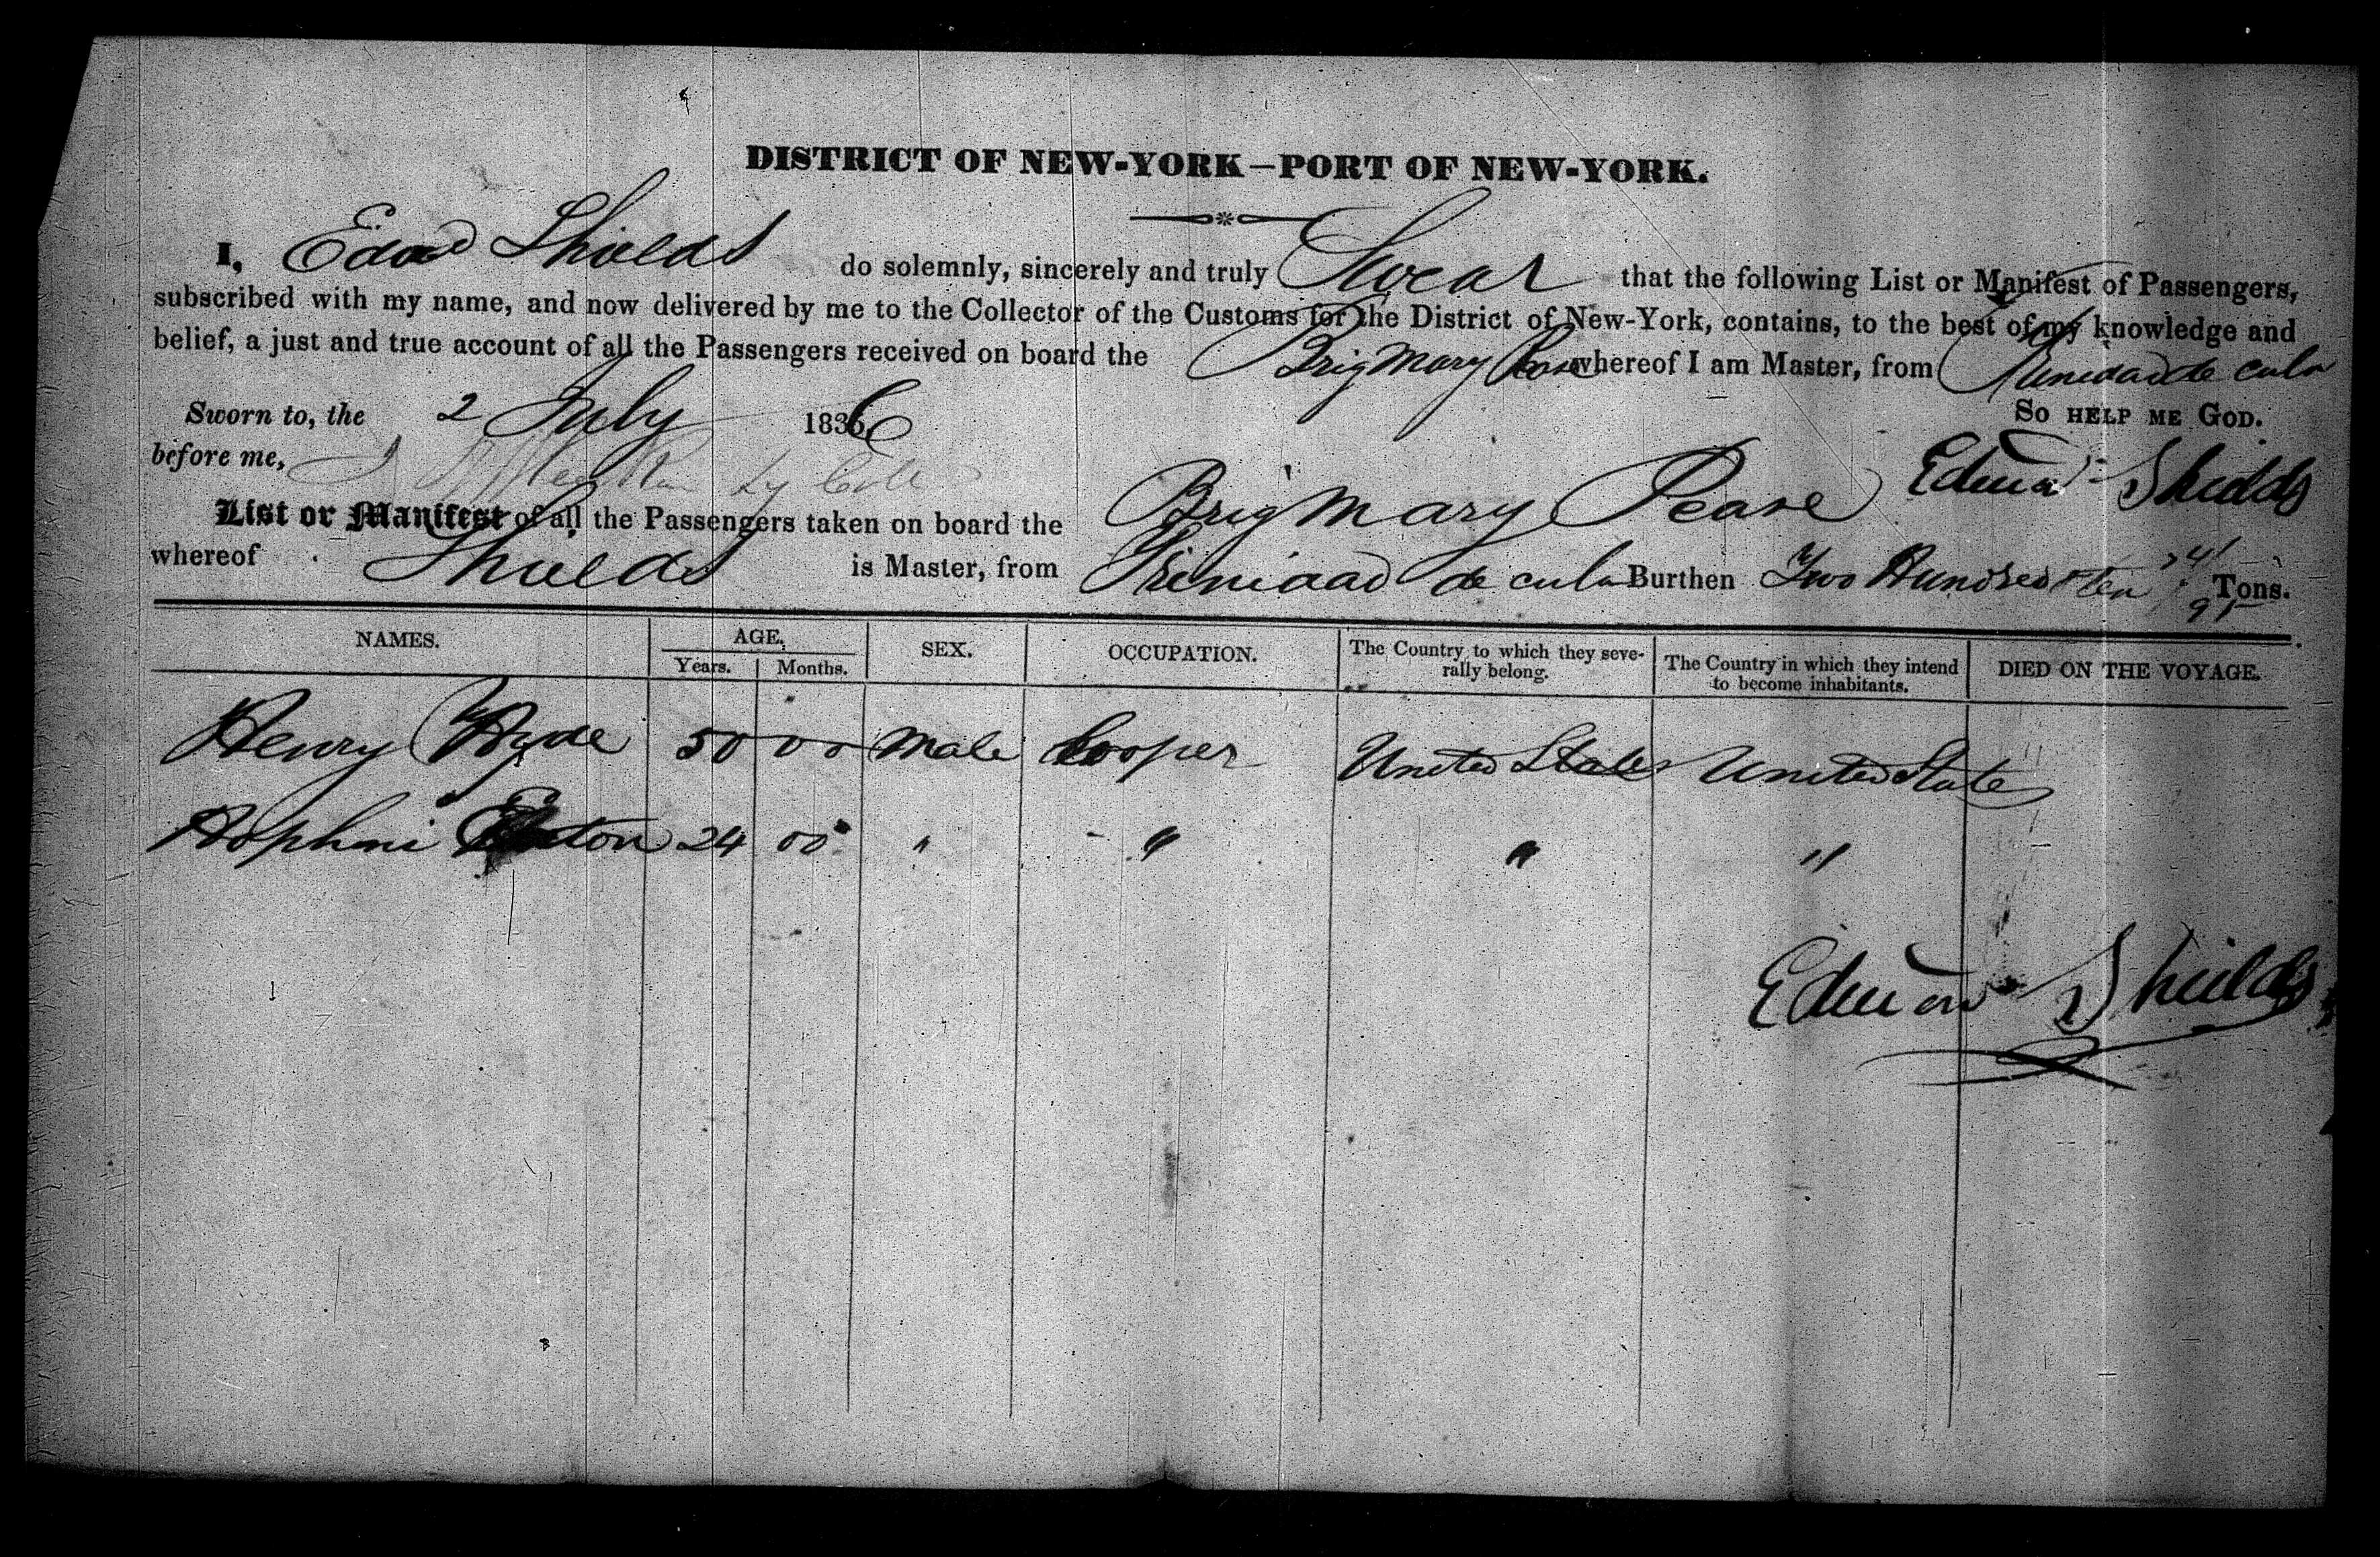 DISTRICT OF NEW-YORK—PORT OF NEW-YORK.
I, Edwd Shields do solemnly, sincerely and truly Swear that the following List or Manifest of Passengers,
subscribed with my name, and now delivered by me to the Collector of the Customs for the District of New-York, contains, to the best of my knowledge and
belief, a just and true account of all the Passengers received on board the Brig Mary Pease whereof I am Master, from Trinidad de cuba
Sworn to, the 2 July 1836 So HELP ME GOD.
before me, Edward Shields
List or Manifest of all the Passengers taken on board the Brig Mary Pease
whereof Shields is Master, from Trinidad de cuba Burthen Two Hundred & Ten 41/95 Tons.
NAMES. AGE. SEX. OCCUPATION. The Country to which they seve-rally belong. The Country in which they intend to become inhabitants. DIED ON THE VOYAGE.
Years. Months.
Henry Hyde 50 00 Male Cooper United States United State
Hophni Eaton 24 00 " " " "
Edward Shields